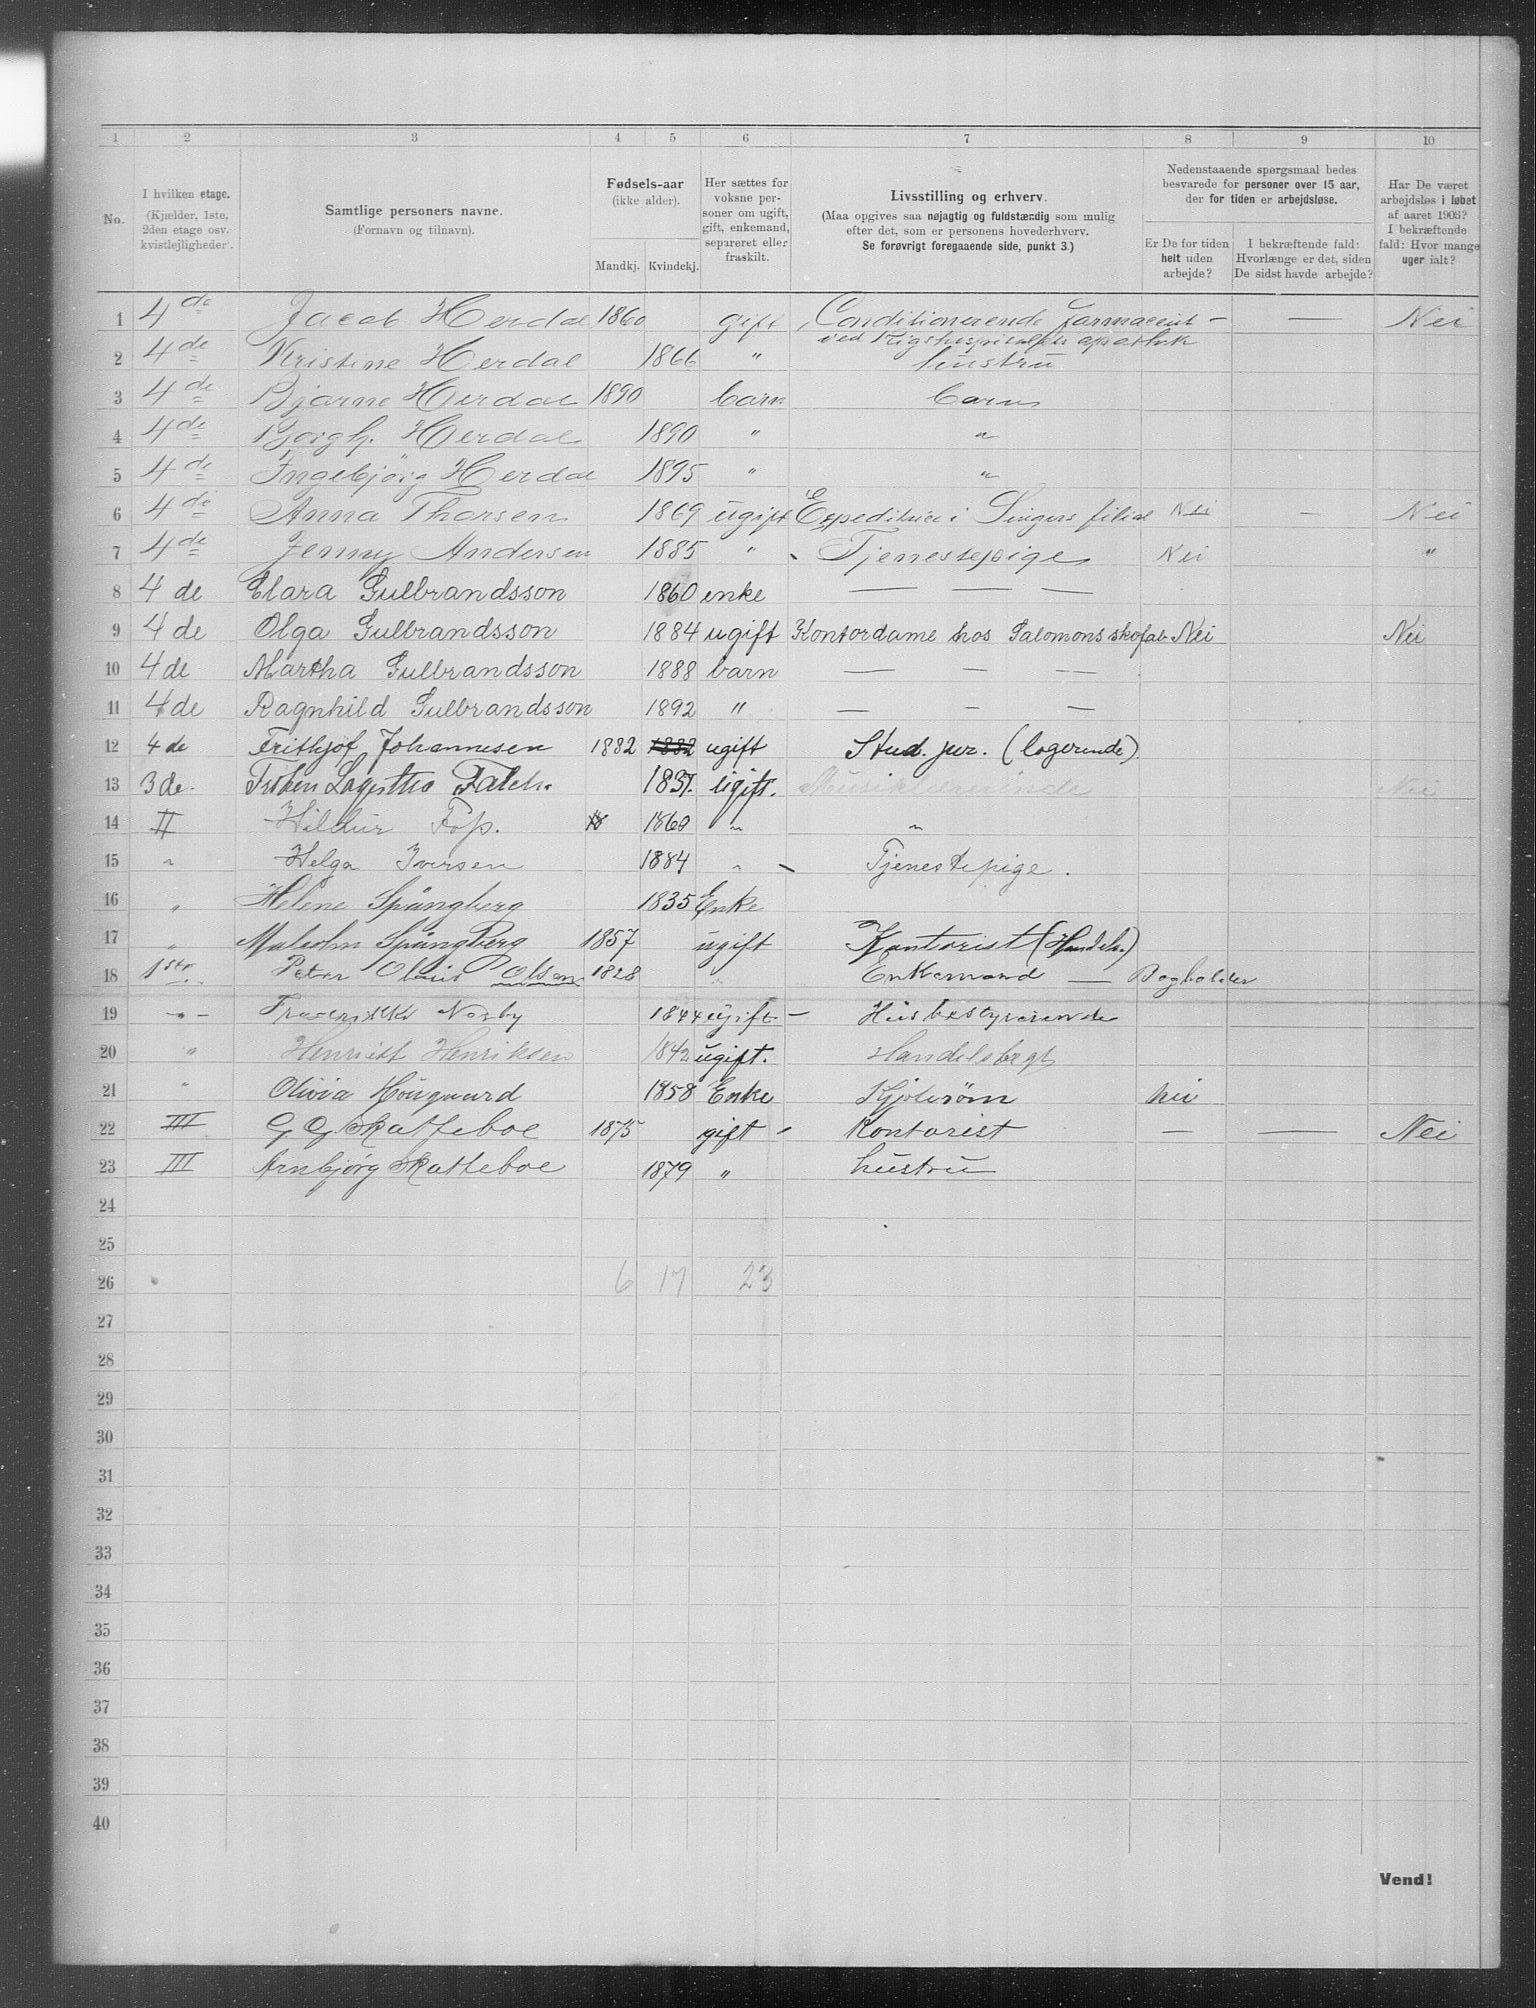 1 2 3 4 5 6 7 8 9 10
No.
I hvilken etage. (Kjælder, 1ste, 2den etage osv. kvistlejligheder.
Samtlige personers navne. (Fornavn og tilnavn).
Fødsels-aar (ikke alder). Mandkj. Kvindekj.
Her sættes for voksne personer om ugift, gift, enkemand, separeret eller fraskilt.
Livsstilling og erhverv. (Maa opgives saa nøjagtig og fuldstændig som mulig efter det, som er personens hovederhverv. Se forøvrigt foregaaende side, punkt 3.)
Nedenstaaende spørgsmaal bedes besvarede for personer over 15 aar, der for tiden er arbejdsløse.
Er De for tiden helt uden arbejde?
I bekræftende fald: Hvorlænge er det, siden De sidst havde arbejde?
Har De været arbejdsløs i løbet af aaret 1903? I bekræftende fald: Hvor mange uger ialt?
1 4de Jacob Herdal 1860 gift Conditionerende farmaceut — — Nei
ved Rigshospitalets apothek
2 4de Kristine Herdal 1866 " hustru
3 4de Bjarne Herdal 1890 barn barn
4 4de Borgh. Herdal 1890 " "
5 4de Ingebjörg Herdal 1895 " "
6 4de Anna Thorsen 1869 ugift Expeditrice i Singers filial Nei — Nei
7 4de Jenny Andersen 1885 " Tjenestepige Nei "
8 4 de Clara Gulbrandsson 1860 enke — — —
9 4 de Olga Gulbrandsson 1884 ugift Kontordame hos Salomons skofab Nei Nei
10 4 de Martha Gulbrandsson 1888 barn — — —
11 4 de Ragnhild Gulbrandsson 1892 " — — —
12 4 de Frithjof Johannesen 1882 1882 ugift Stud. jur. (logerende).
13 3 de. Falch. 1837. ugift. Musiklærerinde Nei
14 II Hildur 1860 " "
15 " Helga Iversen 1884 " Tjenestepige.
16 " Helene Spångberg 1835 Enke
17 " Malcolm Spångberg 1857 ugift Kontorist (Handels.)
18 1ste Peter Olaus Olsen 1828 " Enkemand — Bogholder
19 - " - Frederikke Norby 1844 ugift — Husbestyrerinde
20 " Henriett Henriksen 1842 ugift. Handelsbrgt
21 " Olivia Hougaard 1858 Enke Kjolesøm nei
22 III G G Skatteboe 1875 gift Kontorist — — Nei
23 III Arnbjørg Skatteboe 1879 " hustru
24
25
26 6 17 23
27
28
29
30
31
32
33
34
35
36
37
38
39
40
Vend!